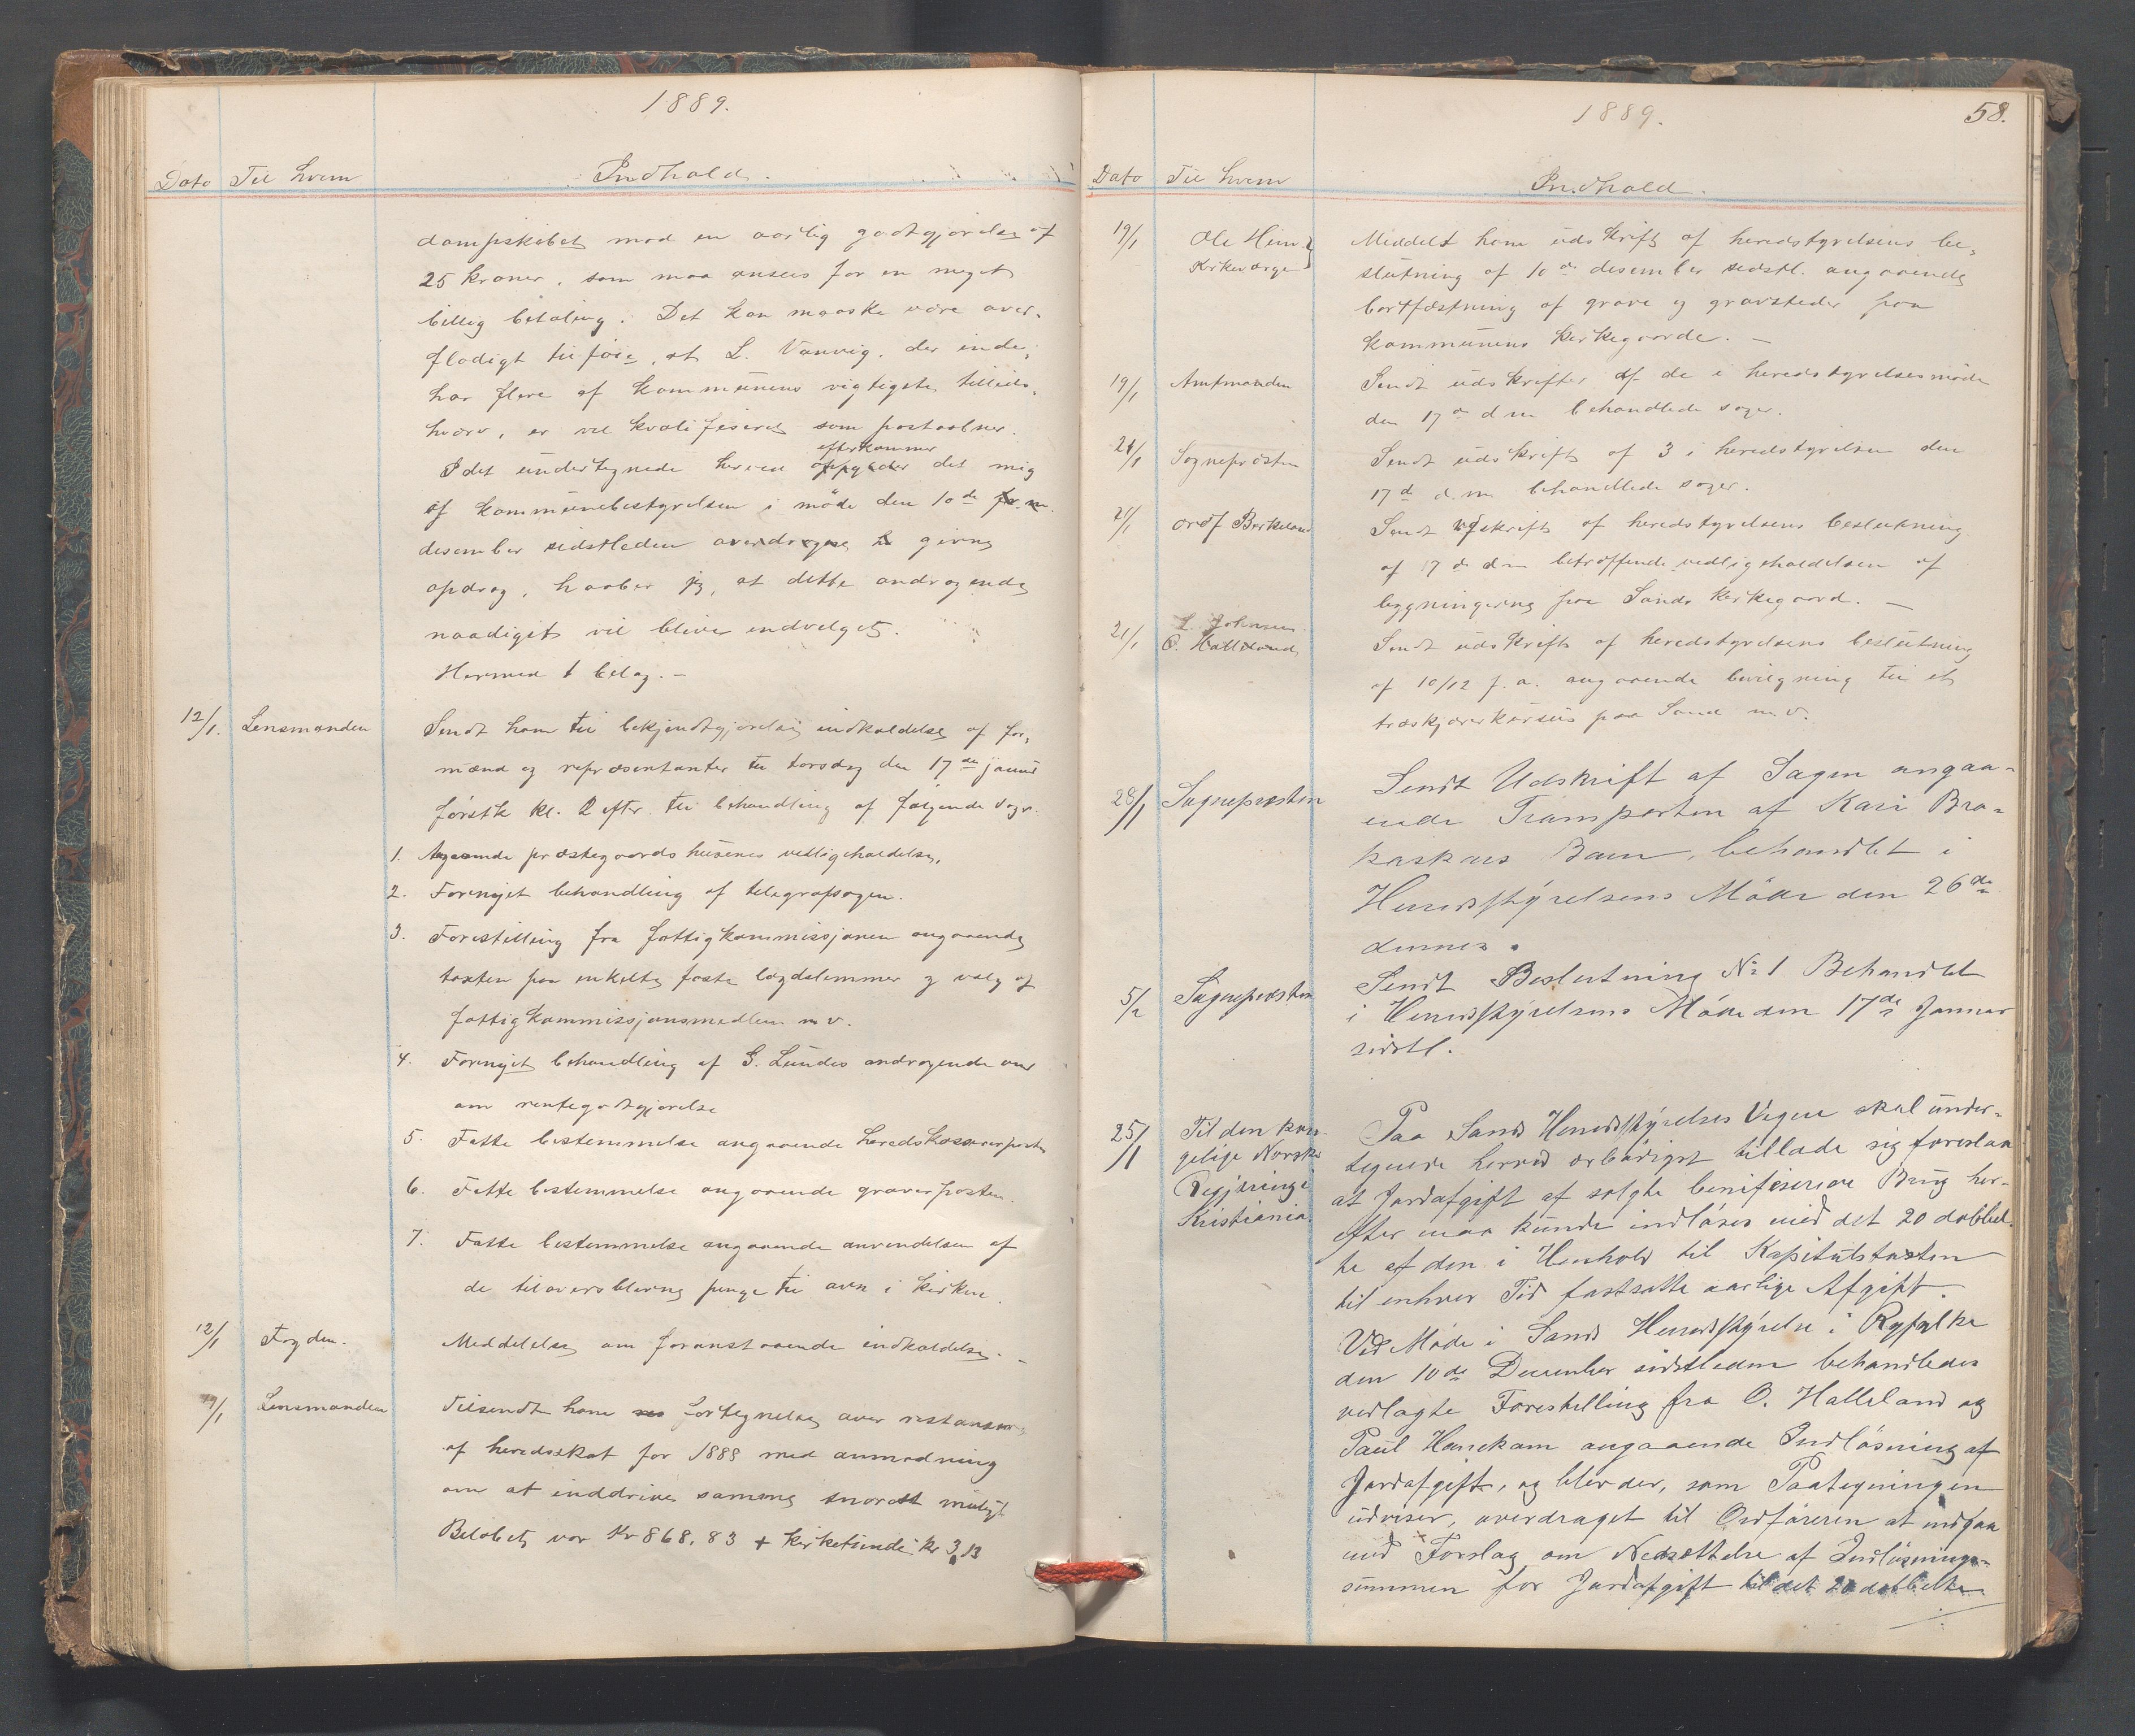 1889.
Dato Til hvem Indhold.
dampskibet mod en aarlig godtgjørelse af
25 kroner, som maa ansees for en meget
billig betaling. Det kan maaske være over-
flødigt tilføie, at L. Vanvig, der inde-
har flere af kommunens vigtigste tillids-
hverv, er vel kvalifiseret som postaabner.
efterkommer
Idet undertegnede herved det mig
af kommunebestyrelsen i møde den 10de
desember sidstleden givne
opdrag, haaber jeg, at dette andragende
naadigst vil blive indvilget.
Hermed 1 bilag. —
12/1. Lensmanden Sendt ham til bekjendtgjørelse indkaldelse af for-
mænd og repræsentanter til torsdag den 17de januar
førstk kl. 2 efter. til behandling af følgende sager.
1. Angaaende præstegaardshusenes vedligeholdelse.
2. Fornyet behandling af telegrafsagen.
3. Forestilling fra fattigkommissjonen angaaende
taxten paa enkelte faste lægdslemmer og valg af
fattigkommissjonsmedlem m v.
4. Fornyet behandling af G. Lundes andragende om
om rentegodtgjørelse
5. Fatte bestemmelse angaaende heredskasserer posten
6. Fatte bestemmelse angaaende graverposten.
7. Fatte bestemmelse angaaende anvendelsen af
de tiloversblevne penge til ovn i kirken.
12/1 Fogden. Meddelelse om foranstaaende indkaldelse. —
Lensmanden Tilsendt ham fortegnelse over restanser
af heredsskat for 1888 med anmodning
om at inddrive samme snarest muligt
Beløbet var Kr 868,83 + kirketiende kr 3,13
1889. 58.
Dato Til hvem Indhold.
19/1 Ole Heim Meddelt ham udskrift af heredstyrelsens be-
Kirkeværge slutning af 10de desember sidstl. angaaende
bortfæstning af grave og gravsteder paa
kommunens kirkegaarde. —
19/1 Amtmanden Sendt udskrifter af de i heredstyrelsesmøde
den 17de d m behandlede sager.
21/1 Sognepræsten Sendt udskrift af 3 i heredstyrelsen den
17de d. m. behandlede sager.
21/1 Ordf Birkeland Sendt udskrift af heredstyrelsens beslutning
af 17de d m betræffende vedligeholdelsen af
bygningerne paa Sands kirkegaard. —
L. Johnsen.
21/1 O. Halleland Sendt udskrift af heredstyrelsens beslutning
af 10/12 f. a. angaaende bevilgning til et
træskjærerkursus paa Sand m. v.
28/1 Sognepræsten Sendt Udskrift af Sagen angaa-
ende Transporten af Kari Bra-
Barn, behandlet i
Herredsstyrelsens Møde den 26de
dennes.
5/2 Sognepræsten Sendt Beslutning No 1 Behandlet
i Herredsstyrelsens Møde den 17de Januar
sidstl.
25/1 Til den kon- Paa Sands Herredsstyrelses Vegne skal under-
gelige Norske tegnede herved ærbødigst tillade sig foreslaa
Regjering i at Jordafgift af solgte benifiserede Brug her-
Kristiania. efter maa kunde indløses med det 20 dobbel-
te af den i Henhold til Kapitulstaxten
til enhver Tid fastsatte aarlige Afgift.
Ved Møde i Sands Herredsstyrelse i Ryfylke
den 10de December sidstleden behandledes
vedlagte Forestilling fra O. Halleland og
Paul Hanekam angaaende Indløsning af
Jordafgift, og blev der, som Paategningen
udviser, overdraget til Ordføreren at indgaa
med Forslag om Nedsættelse af Indløsnings-
summen for Jordafgift til det 20 dobbelte